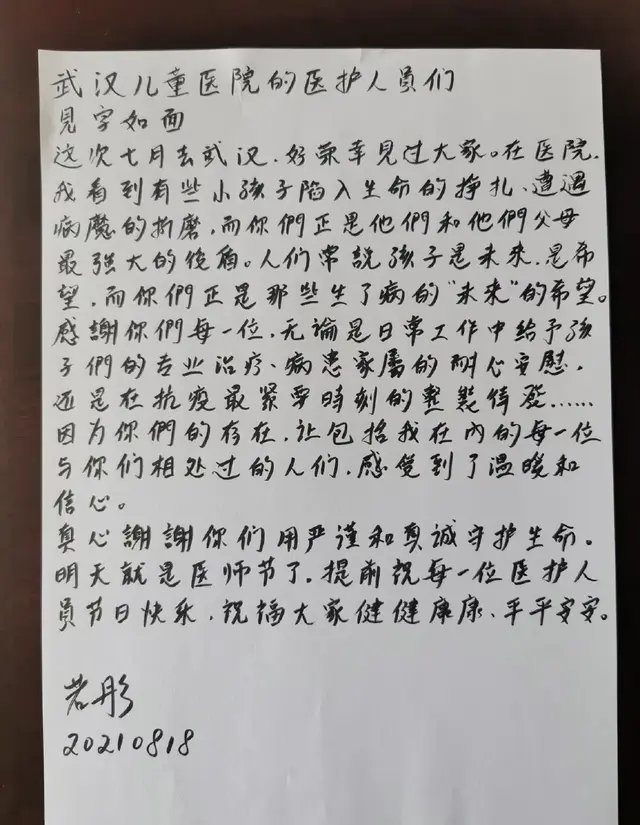 武汉儿童医院的医护人員们
見字如面
这次七月去武汉，好荣幸見过大家。在医院，
我看到有些小孩子陷入生命的挣扎、遭遇
病魔的折磨，而你們正是他們和他們父母
最强大的後盾。人们常說孩子是未来，是希
望，而你們正是那些生了病的“未来”的希望。
感謝你們每一位，无論是日常工作中給予孩
子們的专业治疗、病患家屬的耐心安慰，
还是在抗疫最紧要時刻的整裝待發……
因为你們的存在，让包括我在內的每一位
与你们相处过的人们，感受到了温暖和
信心。
真心謝謝你们用严谨和真誠守护生命。
明天就是医师节了，提前祝每一位医护人
員节日快乐，祝福大家健健康康、平平安安。
若彤
20210818